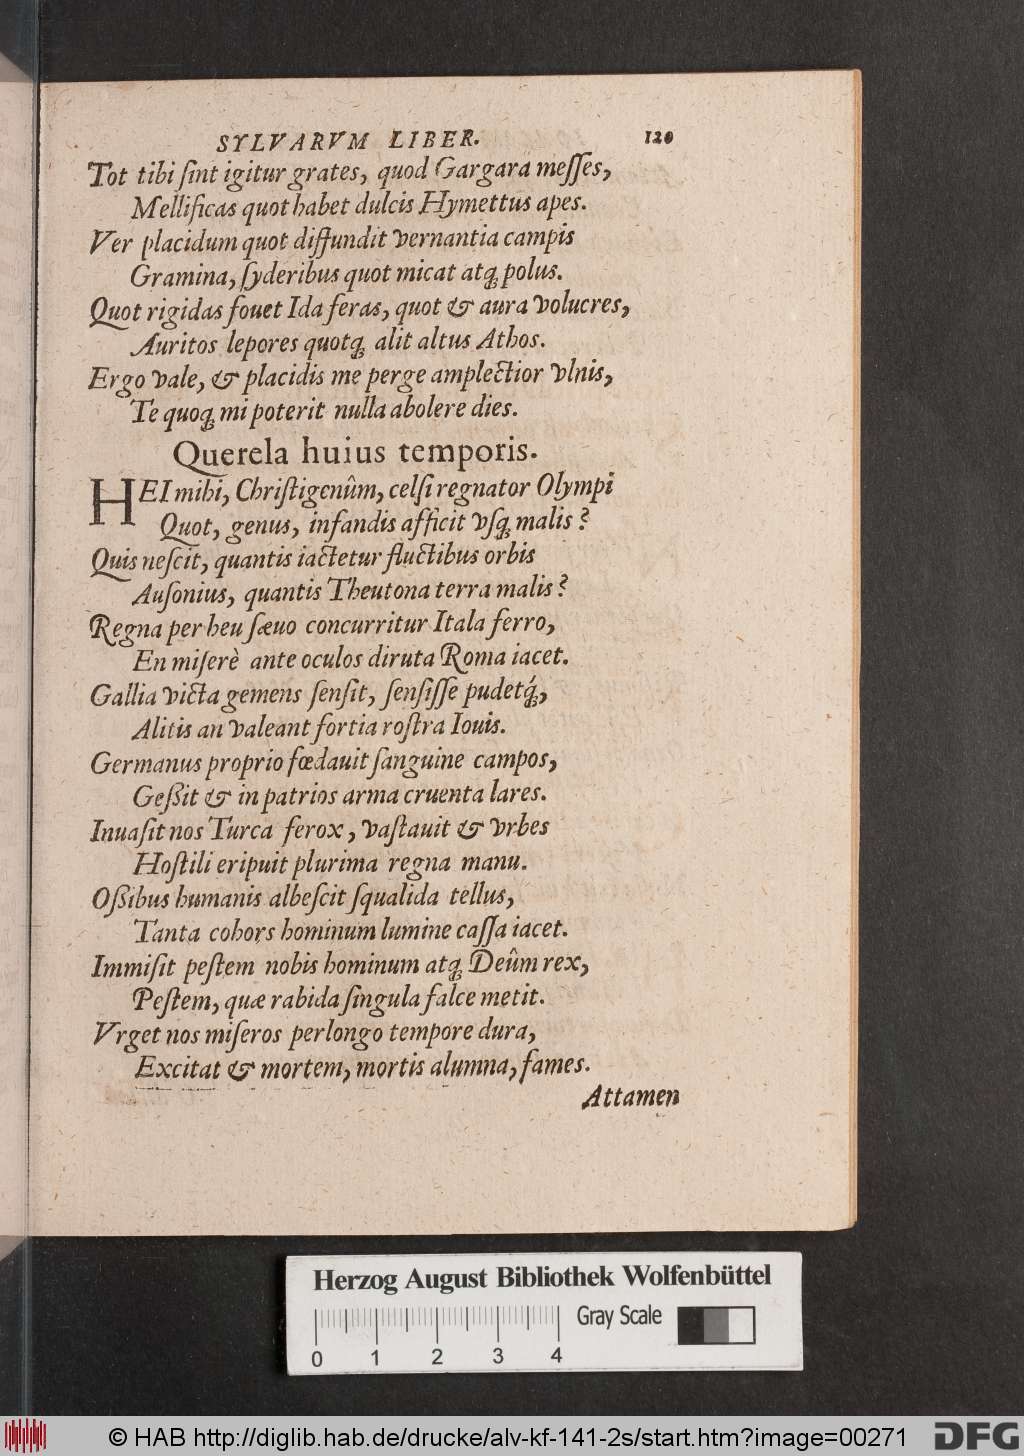 SYLVARVM LIBER. 120
Tot tibi ſint igitur grates, quod Gargara meſſes,
Mellificas quot habet dulcis Hymettus apes.
Ver placidum quot diffundit vernantia campis
Gramina, ſyderibus quot micat atq; polus.
Quot rigidas fouet Ida feras, quot & aura volucres,
Auritos lepores quotq; alit altus Athos.
Ergo vale, & placidis me perge amplectior vlnis,
Te quoq; mi poterit nulla abolere dies.
Querela huius temporis.
HEI mihi, Chriſtigenûm, celſi regnator Olympi
Quot, genus, infandis afficit vſq; malis?
Quis neſcit, quantis iactetur fluctibus orbis
Auſonius, quantis Theutona terra malis?
Regna per heu ſæuo concurritur Itala ferro,
En miſerè ante oculos diruta Roma iacet.
Gallia victa gemens ſenſit, ſenſiſſe pudetq́;,
Alitis an valeant fortia roſtra Iouis.
Germanus proprio fœdauit ſanguine campos,
Geßit & in patrios arma cruenta lares.
Inuaſit nos Turca ferox, vaſtauit & vrbes
Hoſtili eripuit plurima regna manu.
Oßibus humanis albeſcit ſqualida tellus,
Tanta cohors hominum lumine caſſa iacet.
Immiſit peſtem nobis hominum atq; Deûm rex,
Peſtem, quæ rabida ſingula falce metit.
Vrget nos miſeros perlongo tempore dura,
Excitat & mortem, mortis alumna, fames.
Attamen
Herzog August Bibliothek Wolfenbüttel
Gray Scale
0 1 2 3 4
© HAB http://diglib.hab.de/drucke/alv-kf-141-2s/start.htm?image=00271
DFG